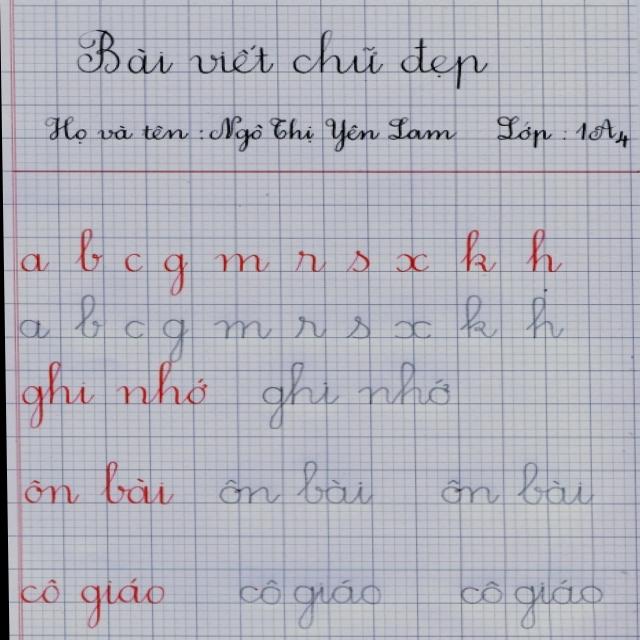 Bài viết chữ đẹp
Họ và tên : Ngô Thị Yến Lam Lớp : 1A4
a b c g m r s x k h
a b c g m r s x k h
ghi nhớ ghi nhớ
ôn bài ôn bài ôn bài
cô giáo cô giáo cô giáo